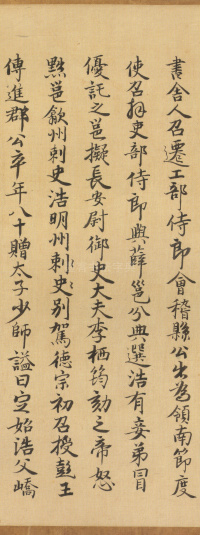 書舍人召遷工部侍郎會稽縣公出為領南節度
使召拜吏部侍郎與薛邕分典選浩有妾弟冒
優託之邕擬長安尉御史大夫李栖筠劾之帝怒
黜邕歙州刺史浩明州刺史別駕德宗初召授彭王
傅進郡公卒年八十贈太子少師謚曰定始浩父嶠